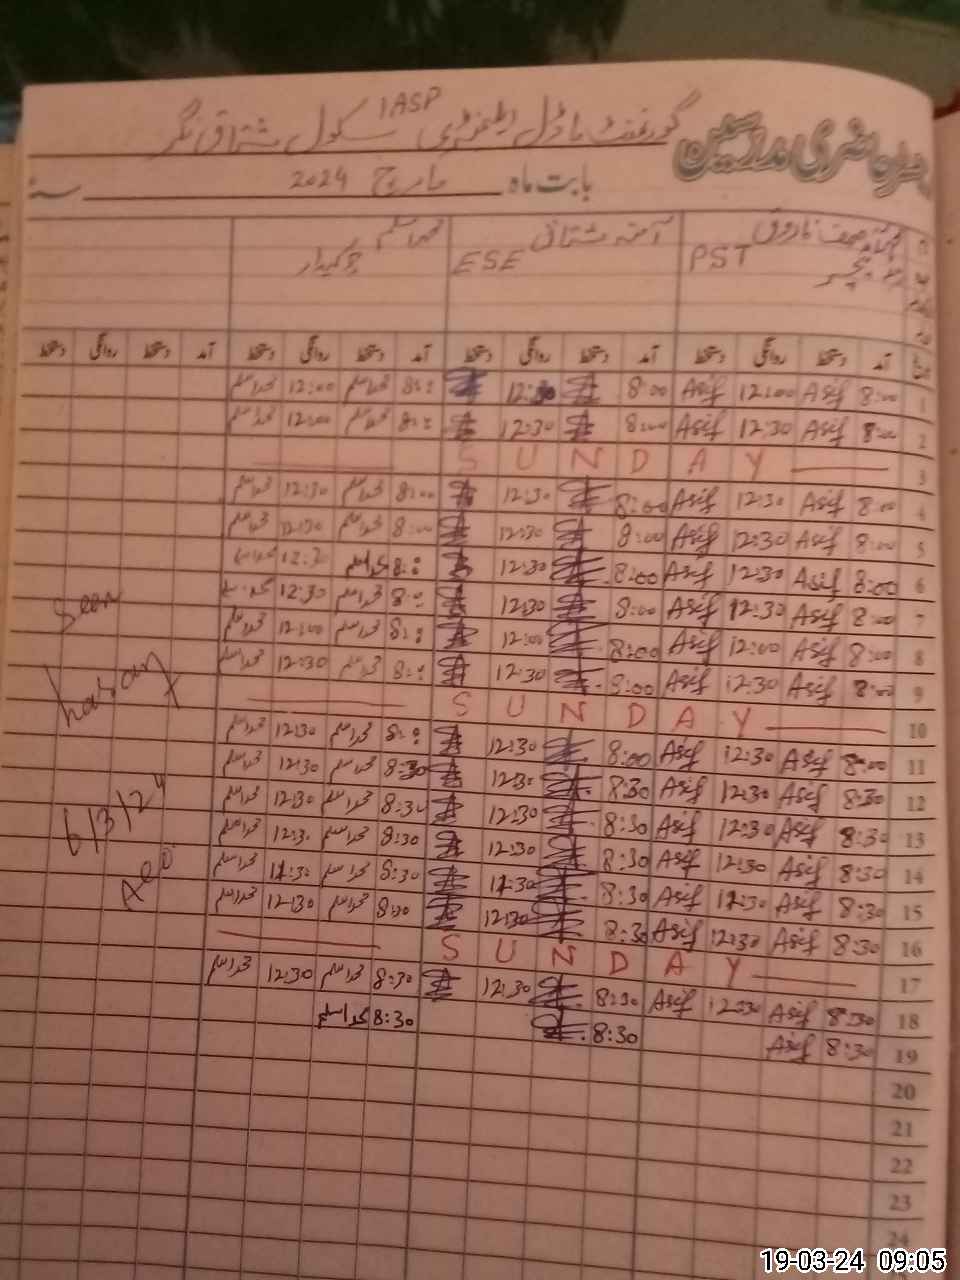 گورنمنٹ ماڈل ایلیمنٹری IASP سکول مشتاق نگر
حاضری مدرسین
بابت ماہ مارچ 2024 سنہ
آصف فاروق آمنہ مشتاق محمد اسلم
PST ESE چوکیدار
آمد دستخط روانگی دستخط آمد دستخط روانگی دستخط آمد دستخط روانگی دستخط آمد دستخط روانگی دستخط
1 8:00 Asif 12:00 Asif 8:00 12:30 محمد اسلم 12:00 محمد اسلم
2 8:00 Asif 12:30 Asif 8:00 12:30 محمد اسلم 12:00 محمد اسلم
3 SUNDAY
4 8:00 Asif 12:30 Asif 8:00 12:30 8:00 محمد اسلم 12:30 محمد اسلم
5 8:00 Asif 12:30 Asif 8:00 12:30 8:00 محمد اسلم 12:30 محمد اسلم
6 8:00 Asif 12:30 Asif 8:00 12:30 محمد اسلم 12:30
7 8:00 Asif 12:30 Asif 8:00 12:30 محمد اسلم 12:30
8 8:00 Asif 12:00 Asif 8:00 12:00 محمد اسلم 12:00 محمد اسلم
9 8:00 Asif 12:30 Asif 8:00 12:30 محمد اسلم 12:30 محمد اسلم
10 SUNDAY
11 8:00 Asif 12:30 Asif 8:00 12:30 محمد اسلم 12:30 محمد اسلم
12 8:30 Asif 12:30 Asif 8:30 12:30 8:30 محمد اسلم 12:30 محمد اسلم
13 8:30 Asif 12:30 Asif 8:30 12:30 8:30 محمد اسلم 12:30 محمد اسلم
14 8:30 Asif 12:30 Asif 8:30 12:30 8:30 محمد اسلم 12:30 محمد اسلم
15 8:30 Asif Asif 8:30 8:30 محمد اسلم محمد اسلم
16 8:30 Asif 12:30 Asif 8:30 12:30 محمد اسلم 12:30 محمد اسلم
17 SUNDAY
18 8:30 Asif 12:30 Asif 8:30 12:30 8:30 محمد اسلم 12:30 محمد اسلم
19 8:30 Asif 8:30 8:30 محمد اسلم
20
21
22
23
24
Seen
6/3/24
Aeo
19-03-24 09:05